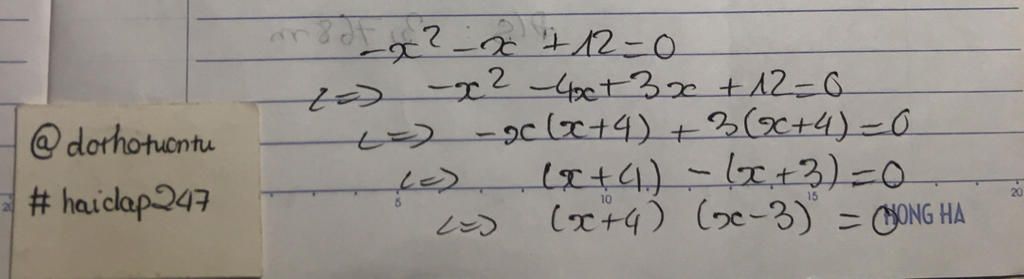 -x² - x + 12 = 0
<=> -x² - 4x + 3x + 12 = 0
<=> -x(x+4) + 3(x+4) = 0
<=> (x+4) - (x+3) = 0
<=> (x+4) (x-3) = 0
@dorhotuontu
# haiclap247
5 10 15 20
HONG HA